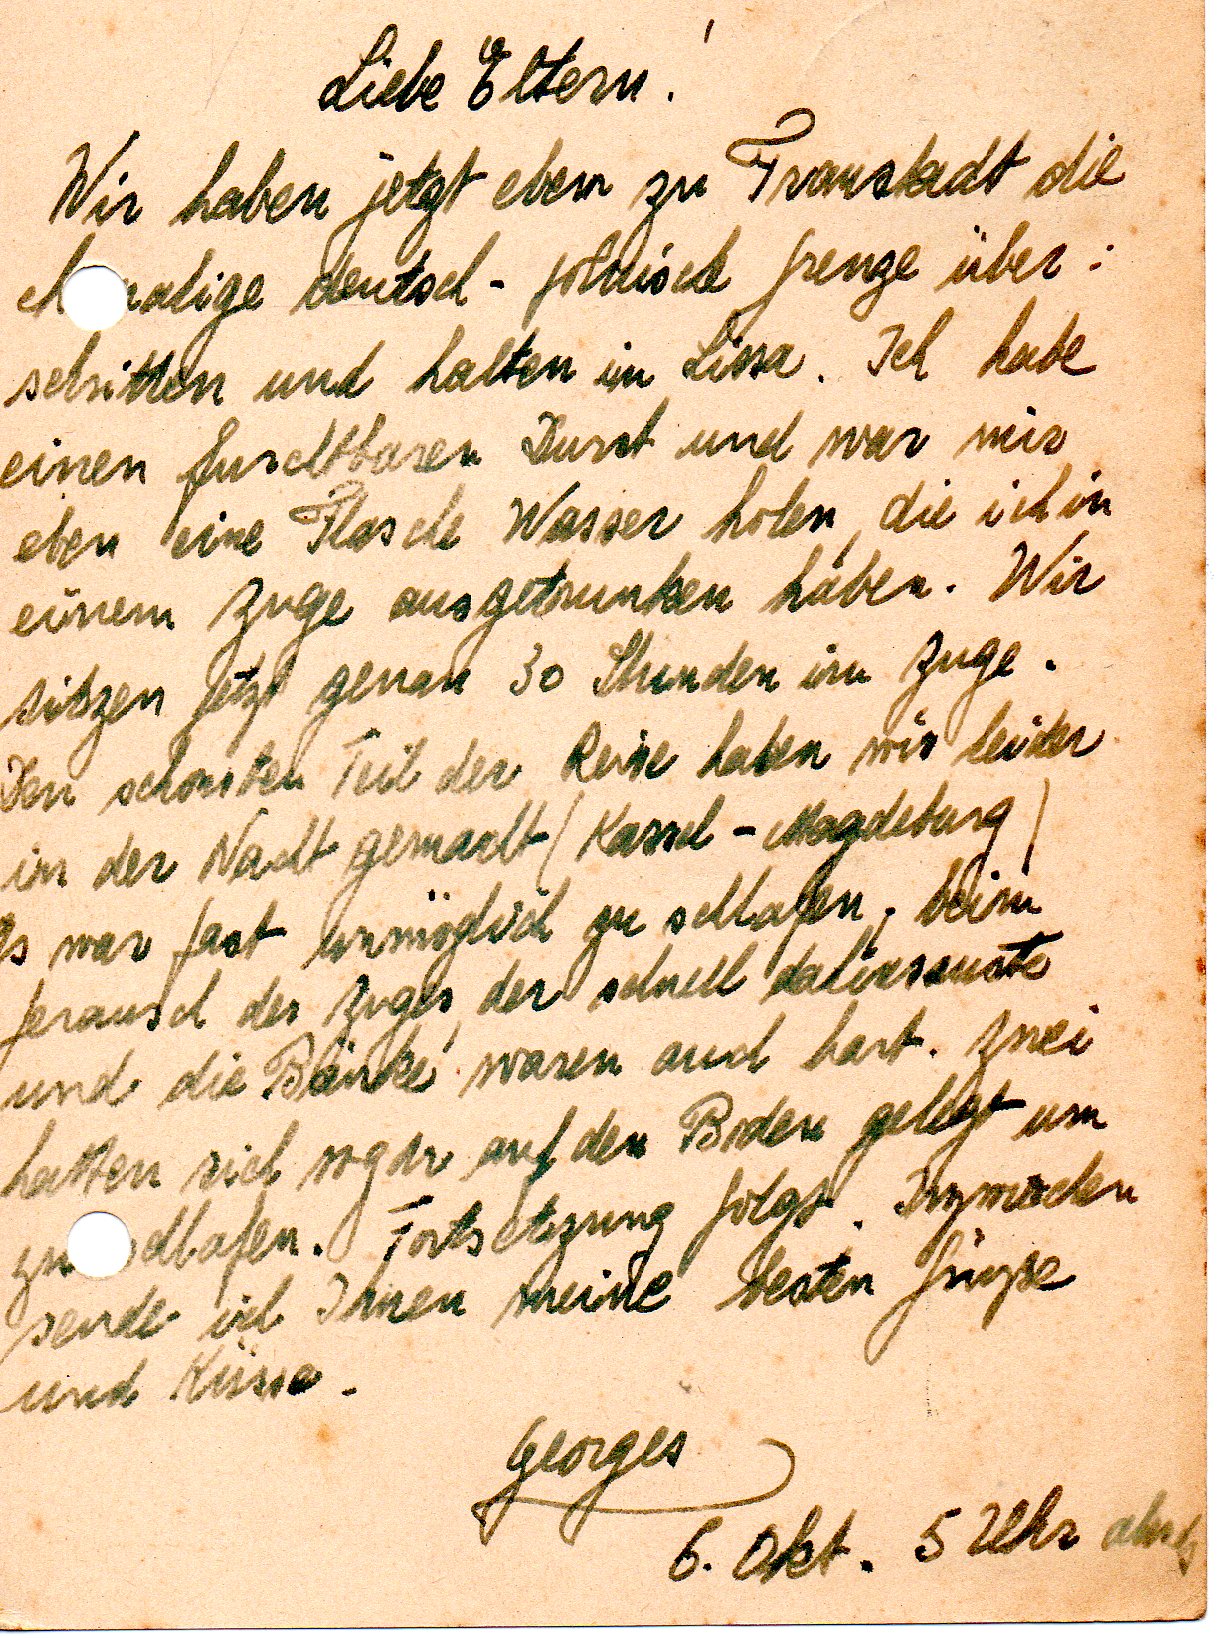 Liebe Eltern!
Wir haben jetzt eben zu Fraustadt die
eh malige deutsch-polnische Grenze über:
schritten und halten in Lissa. Ich habe
einen furchtbaren Durst und war mir
eben eine Flasche Wasser holen, die ich in
einem Zuge ausgetrunken habe. Wir
sitzen jetzt genau 30 Stunden im Zuge.
Den schönsten Teil der Reise haben wir leider
in der Nacht gemacht (Kassel-Magdeburg)
Es war fast unmöglich zu schlafen, beim
Gerausch des Zuges, der schnell dahinsauste
und die Bänke waren auch hart. Zwei
hatten sich sogar auf den Boden gelegt um
zu schlafen. Fortsetzung folgt. Inzwischen
sende ich Ihnen meine besten Grüsse
und Küsse.
Georges
6. Okt. 5 Uhr abends